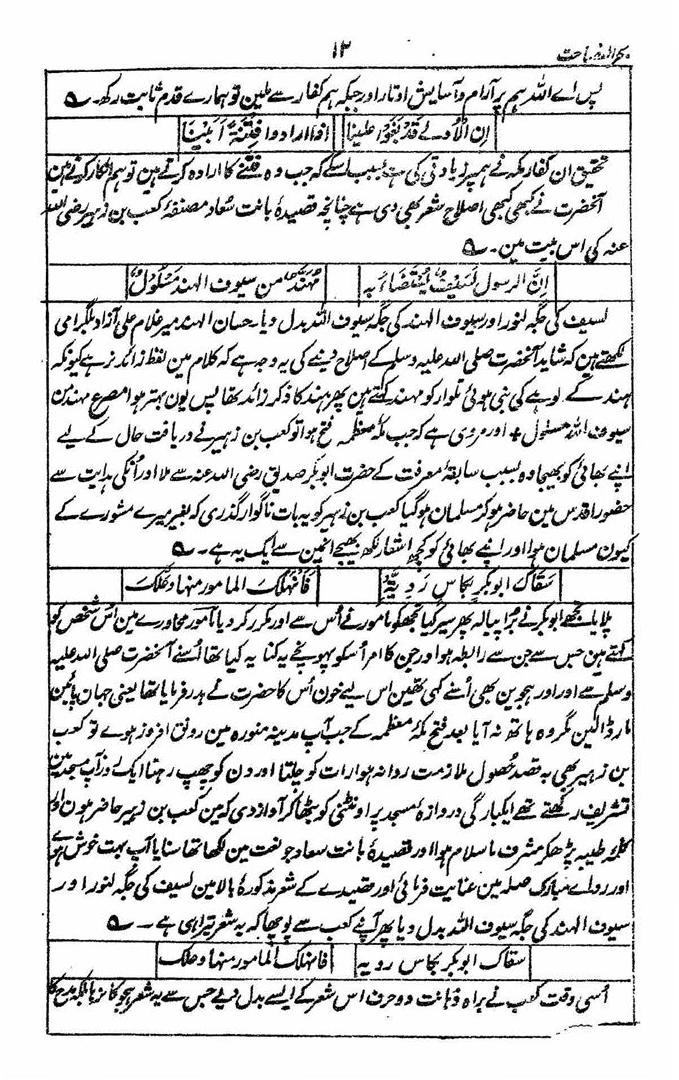 بحر الفصاحت
۱۳
پس اے اللہ ہم پر آرام و آسایش اوتار اور جبکہ ہم کفار سے ملین تو ہمارے قدم ثابت رکھ۔ ؎
اِن الأولے قد بَغَوا علینا اذا ارادوا فِتنۃً اَبَینَا
تحقیق ان کفار مکہ نے ہمپر زیادتی کی ہے بسبب اسکے کہ جب وہ فتنے کا ارادہ کرتے ہین تو ہم انکار کرتے ہین
آنحضرت نے کبھی کبھی اصلاح شعر بھی دی ہے چنانچہ قصیدۂ بانت سُعاد مصنفۂ کعب بن زہیر رضی اللہ
عنہ کی اس بیت مین۔ ؎
اِنَّ الرسول لَسَیفٌ یُستَضَاءُ بِہ مُہَنَّدٌ من سیوف الہند مَسلُولُ
لسیف کی جگہ لنور اور سیوف الہند کی جگہ سیوف اللہ بدل دیا۔ حسان الہند میر غلام علی آزاد بلگرامی
لکھتے ہین کہ شاید آنحضرت صلی اللہ علیہ وسلم کے اصلاح دینے کی یہ وجہ ہے کہ کلام مین لفظ زائد نہ رہے کیونکہ
ہند کے لوہے کی بنی ہوئی تلوار کو مہند کہتے ہین پھر ہند کا ذکر زائد تھا پس یون بہتر ہوا مصرع مہند من
سیوف اللہ مسلول + اور مروی ہے کہ جب مکہ معظمہ فتح ہوا تو کعب بن زہیر نے دریافت حال کے لیے
اپنے بھائی کو بھیجا وہ بسبب سابقۂ معرفت کے حضرت ابوبکر صدیق رضی اللہ عنہ سے ملا اور اُنکی ہدایت سے
حضور اقدس مین حاضر ہوکر مسلمان ہوگیا کعب بن زہیر کو یہ بات ناگوار گذری کہ بغیر میرے مشورے کے
کیون مسلمان ہوا اور اپنے بھائی کو کچھ اشعار لکھ بھیجے انمین سے ایک یہ ہے۔ ؎
سَقَاک ابوبکر بکاس رَدِیَّۃٍ فَاَنہَلَکَ المامور منہا و عَلَّکَ
پلایا تجھے ابوبکر نے بُرا پیالہ پھر سیر کیا تجھکو مامور نے اُس سے اور مکرر کر دیا مامور محاورے مین اُس شخص کو
کہتے ہین جس سے جن سے رابطہ ہو اور جن کا امر اُسکو پہونچے یہ کنایہ کیا تھا اُسنے آنحضرت صلی اللہ علیہ
وسلم سے اور اور ہجوین بھی اُسنے کہی تھین اس لیے خون اُس کا حضرت نے ہدر فرمایا تھا یعنی جہان پائین
مارڈالین مگر وہ ہاتھ نہ آیا بعد فتح مکۂ معظمہ کے جب آپ مدینہ منورہ مین رونق افروز ہوے تو کعب
بن زہیر بھی بہ قصد حُصول ملازمت روانہ ہوا رات کو چلتا اور دن کو چھپ رہتا ایک روز آپ مسجد مین
تشریف رکھتے تھے ایکبارگی دروازۂ مسجد پر اونٹنی کو بٹھا کر آواز دی کہ مین کعب بن زہیر حاضر ہون اور
کلمۂ طیبہ پڑھکر مشرف باسلام ہوا اور قصیدۂ بانت سعاد جو نعت مین لکھا تھا سنایا آپ بہت خوش ہوے
اور ردائے مبارک صلہ مین عنایت فرمائی اور قصیدے کے شعر مذکورۂ بالا مین لسیف کی جگہ لنور اور
سیوف الہند کی جگہ سیوف اللہ بدل دیا پھر آپنے کعب سے پوچھا کہ یہ شعر تیرا ہی ہے۔ ؎
سقاک ابوبکر بکاس رویہ فانہلک المامور منہا و علک
اُسی وقت کعب نے براہ ذہانت دو حرف اس شعر کے ایسے بدل دیے جس سے یہ شعر ہجو کا نہ رہا بلکہ مدح کا